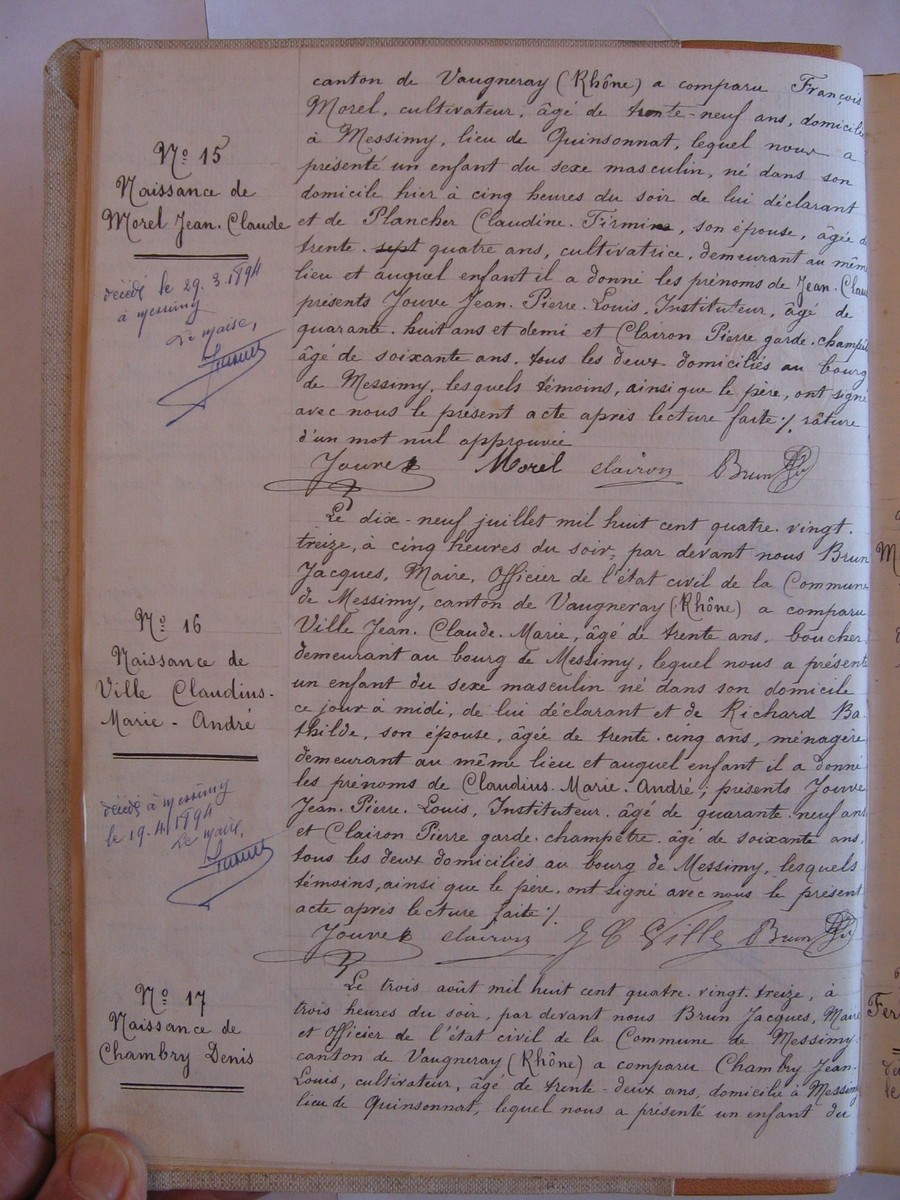 canton de Vaugneray (Rhône) a comparu François
Morel, cultivateur, âgé de trente-neuf ans, domicilié
à Messimy, lieu de Quinsonnat, lequel nous a
présenté un enfant du sexe masculin, né dans son
domicile hier à cinq heures du soir de lui déclarant
et de Plancher Claudine. Firmine, son épouse, âgée de
trente. sept quatre ans, cultivatrice, demeurant au même
lieu et auquel enfant il a donné les prénoms de Jean. Claude
présents Jouve Jean. Pierre. Louis, Instituteur, âgé de
quarante. huit ans et demi et Clairon Pierre garde. champêt
âgé de soixante ans, tous les deux domiciliés au bourg
de Messimy, lesquels témoins, ainsi que le père, ont signé
avec nous le présent acte après lecture faite ./. râture
d'un mot nul approuvée
Jouve Morel Clairon Brun
Nº 15
Naissance de
Morel Jean. Claude
décédé le 29.3.1894
à Messimy
Le maire,
Le dix-neuf juillet mil huit cent quatre. vingt.
treize, à cinq heures du soir, par devant nous Brun
Jacques, Maire, Officier de l'état civil de la Commune
de Messimy, canton de Vaugneray (Rhône) a comparu
Ville Jean. Claude. Marie, âgé de trente ans, boucher
demeurant au bourg de Messimy, lequel nous a présenté
un enfant du sexe masculin né dans son domicile
ce jour à midi, de lui déclarant et de Richard Ba
thilde, son épouse, âgée de trente. cinq ans, ménagère
demeurant au même lieu et auquel enfant il a donné
les prénoms de Claudius. Marie. André; présents Jouve
Jean. Pierre. Louis, Instituteur, âgé de quarante. neuf ans
et Clairon Pierre garde. champêtre, âgé de soixante ans,
tous les deux domiciliés au bourg de Messimy, lesquels
témoins, ainsi que le père, ont signé avec nous le présent
acte après lecture faite ./.
Jouve Clairon Ville Brun
Nº 16
Naissance de
Ville Claudius-
Marie - André
décédé à Messimy
le 19.4.1894
Le maire,
Le trois août mil huit cent quatre. vingt. treize, à
trois heures du soir, par devant nous Brun Jacques, Maire
et Officier de l'état civil de la Commune de Messimy.
canton de Vaugneray (Rhône) a comparu Chambry Jean.
Louis, cultivateur, âgé de trente-deux ans, domicilié à Messimy
lieu de Quinsonnat, lequel nous a présenté un enfant du
Nº 17
Naissance de
Chambry Denis